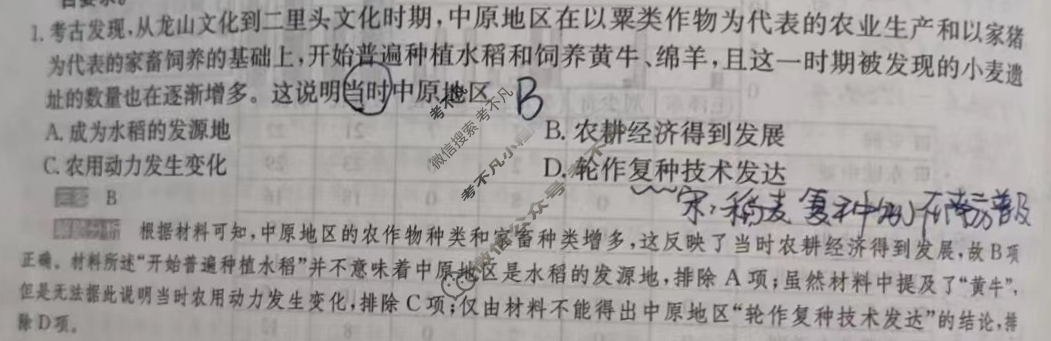 1. 考古发现,从龙山文化到二里头文化时期,中原地区在以粟类作物为代表的农业生产和以家猪
为代表的家畜饲养的基础上,开始普遍种植水稻和饲养黄牛、绵羊,且这一时期被发现的小麦遗
址的数量也在逐渐增多。这说明当时中原地区 B
A. 成为水稻的发源地 B. 农耕经济得到发展
C. 农用动力发生变化 D. 轮作复种技术发达
宋:稻麦复种制在南方普及
答案 B
解题分析 根据材料可知,中原地区的农作物种类和家畜种类增多,这反映了当时农耕经济得到发展,故B项
正确。材料所述“开始普遍种植水稻”并不意味着中原地区是水稻的发源地,排除A项;虽然材料中提及了“黄牛”,
但是无法据此说明当时农用动力发生变化,排除C项;仅由材料不能得出中原地区“轮作复种技术发达”的结论,排
除D项。
微信搜索 考不凡